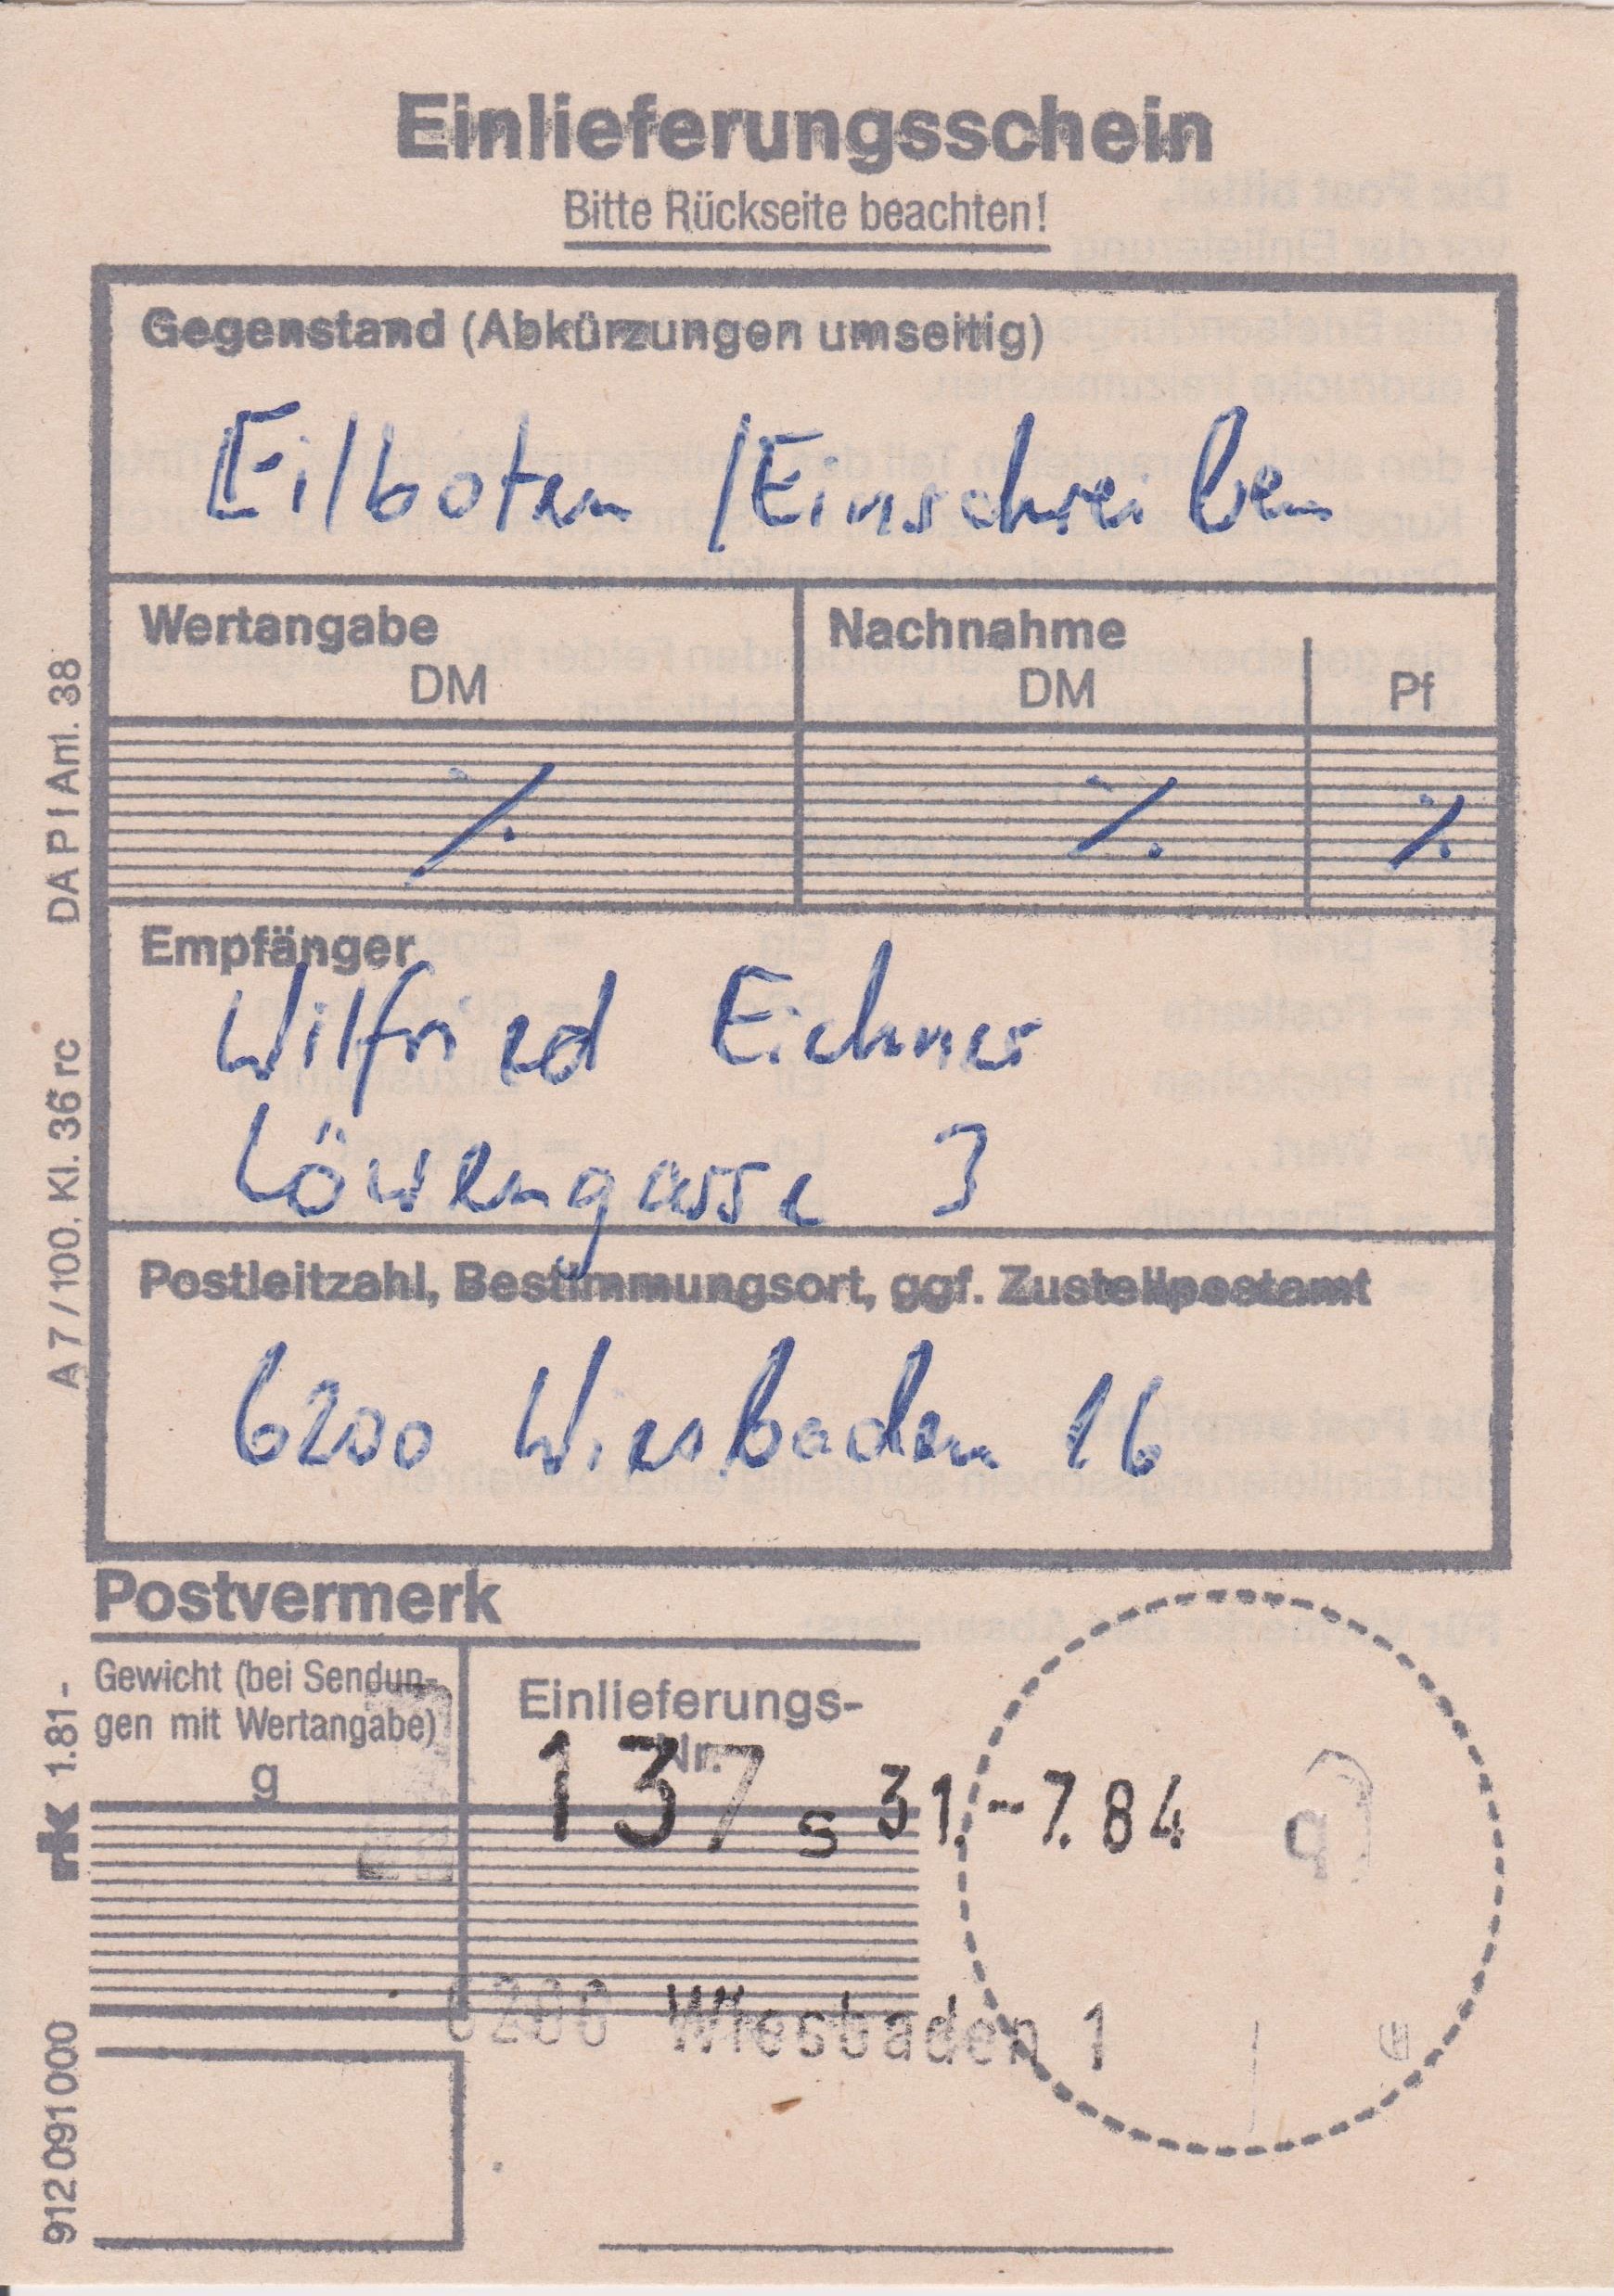 Einlieferungsschein
Bitte Rückseite beachten!
Gegenstand (Abkürzungen umseitig)
Eilboten /Einschreiben
Wertangabe
DM
Nachnahme
DM
Pf
٪ ٪ ٪
Empfänger
Wilfried Eichner
Löwengasse 3
Postleitzahl, Bestimmungsort, ggf. Zustellpostamt
6200 Wiesbaden 16
Postvermerk
Gewicht (bei Sendun-
gen mit Wertangabe)
g
Einlieferungs-
Nr.
137 s 31.-7.84 q
6200 Wiesbaden 1
912 091 000
rk 1.81 -
A 7 / 100, Kl. 36 rc
DA P I Anl. 38